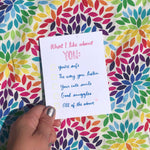 What I like about
YOU:
You're safe
The way you listen
Your cute smile
Good snuggles
All of the above